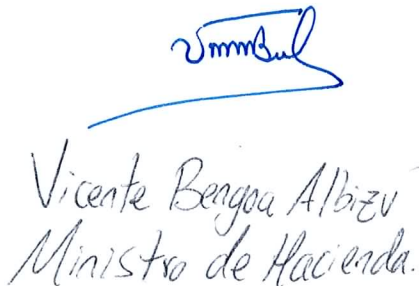 Vicente Bengoa Albizu
Ministro de Hacienda.